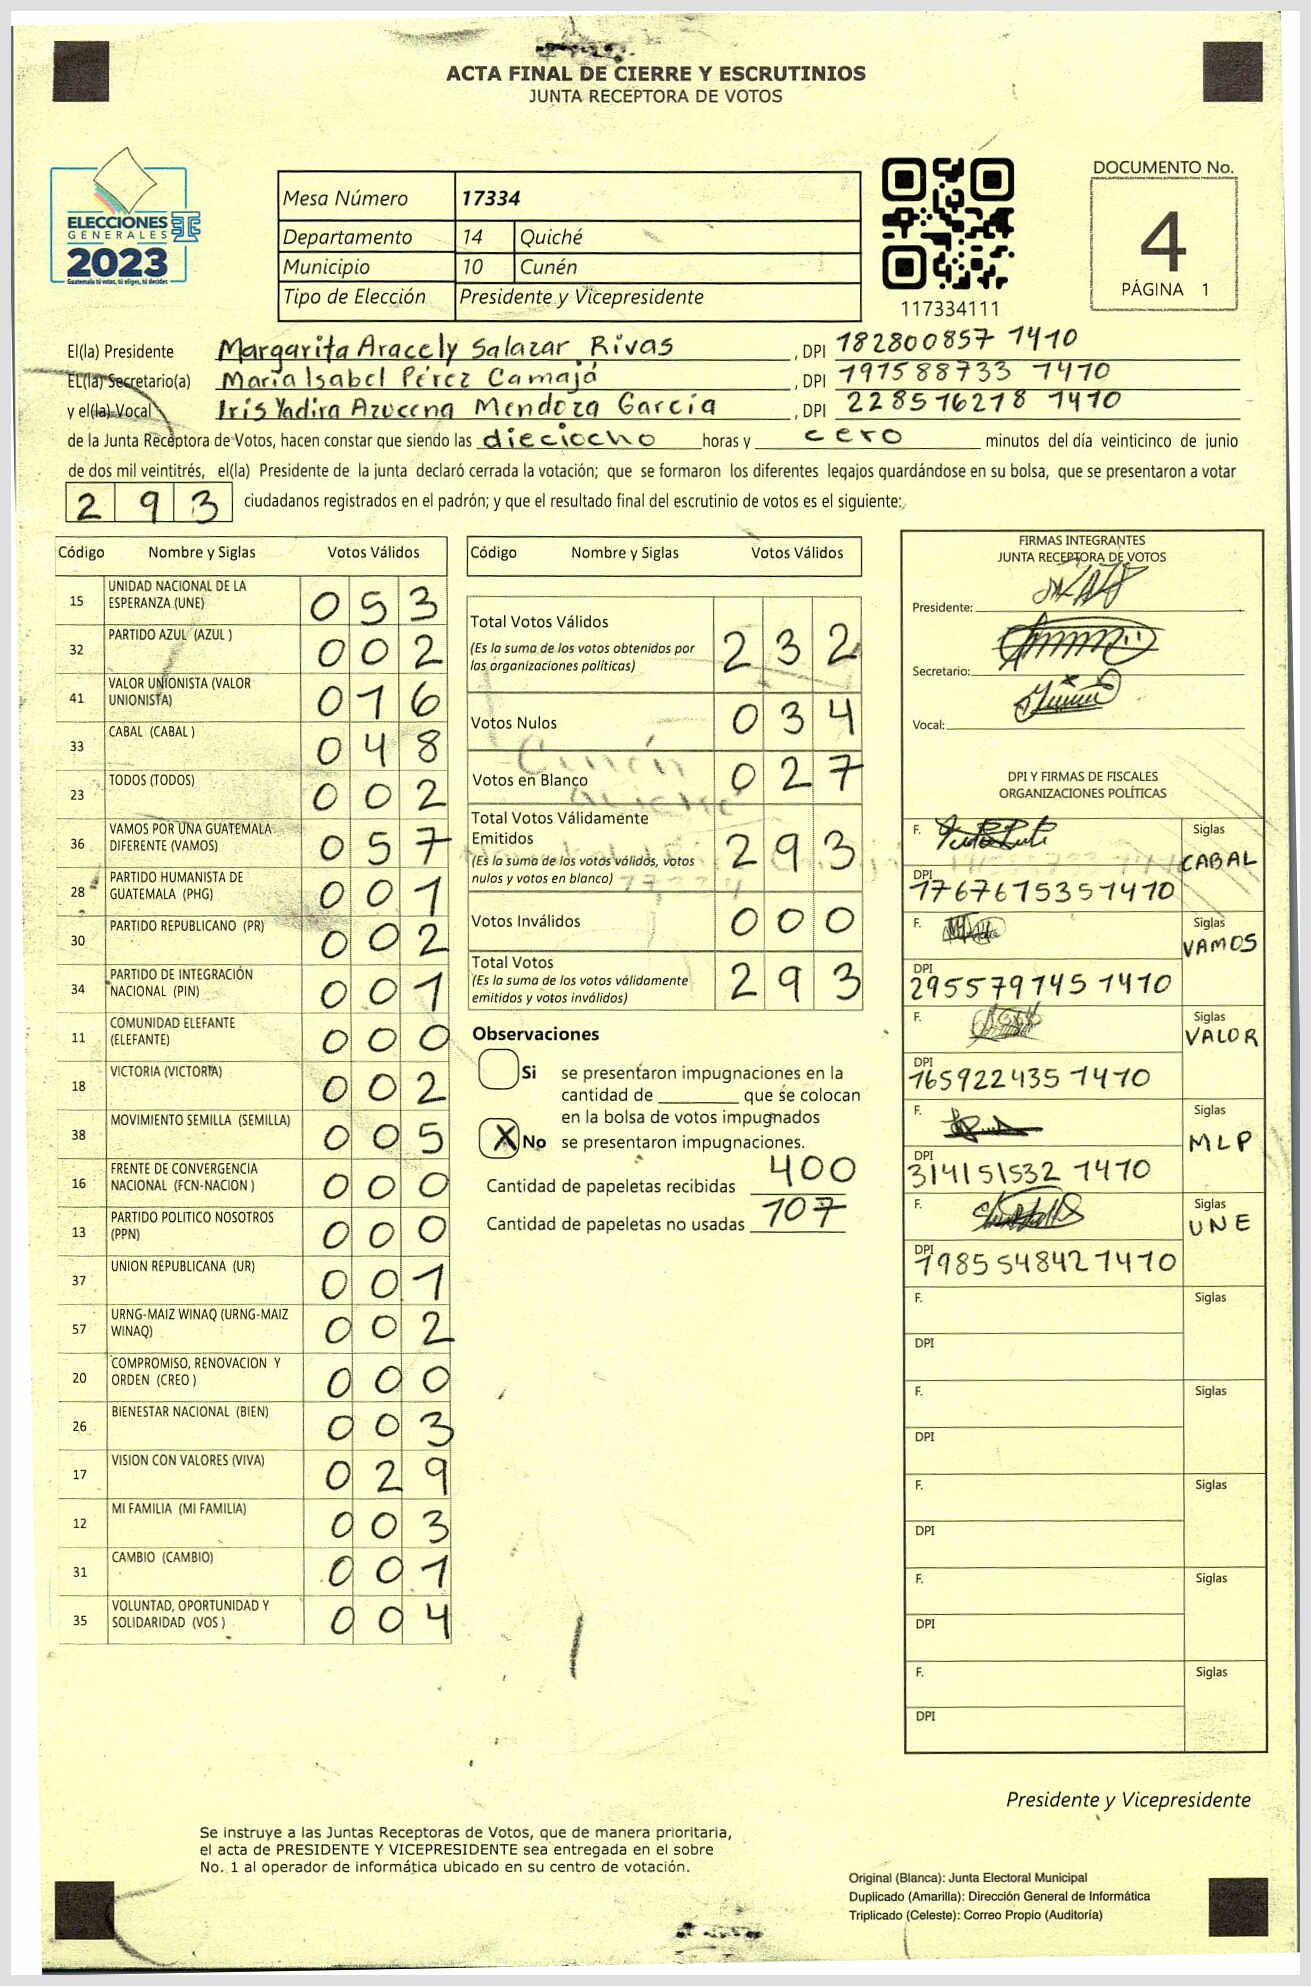 ACTA FINAL DE CIERRE Y ESCRUTINIOS
JUNTA RECEPTORA DE VOTOS
ELECCIONES
GENERALES
2023
Guatemala tú votas, tú eliges, tú decides
Mesa Número 17334
Departamento 14 Quiché
Municipio 10 Cunén
Tipo de Elección Presidente y Vicepresidente
117334111
DOCUMENTO No.
4
PÁGINA 1
El(la) Presidente Margarita Aracely Salazar Rivas, DPI 182800857 1410
EL(la) Secretario(a) María Isabel Pérez Camajá, DPI 191588733 1410
y el(la) Vocal Iris Yadira Azucena Mendoza García, DPI 228516218 1410
de la Junta Receptora de Votos, hacen constar que siendo las dieciocho horas y cero minutos del día veinticinco de junio
de dos mil veintitrés, el(la) Presidente de la junta declaró cerrada la votación; que se formaron los diferentes legajos guardándose en su bolsa, que se presentaron a votar
293 ciudadanos registrados en el padrón; y que el resultado final del escrutinio de votos es el siguiente:
Código Nombre y Siglas Votos Válidos
15 UNIDAD NACIONAL DE LA ESPERANZA (UNE) 053
32 PARTIDO AZUL (AZUL ) 002
41 VALOR UNIONISTA (VALOR UNIONISTA) 016
33 CABAL (CABAL ) 048
23 TODOS (TODOS) 002
36 VAMOS POR UNA GUATEMALA DIFERENTE (VAMOS) 057
28 PARTIDO HUMANISTA DE GUATEMALA (PHG) 001
30 PARTIDO REPUBLICANO (PR) 002
34 PARTIDO DE INTEGRACIÓN NACIONAL (PIN) 001
11 COMUNIDAD ELEFANTE (ELEFANTE) 000
18 VICTORIA (VICTORIA) 002
38 MOVIMIENTO SEMILLA (SEMILLA) 005
16 FRENTE DE CONVERGENCIA NACIONAL (FCN-NACION ) 000
13 PARTIDO POLITICO NOSOTROS (PPN) 000
37 UNION REPUBLICANA (UR) 001
57 URNG-MAIZ WINAQ (URNG-MAIZ WINAQ) 002
20 COMPROMISO, RENOVACION Y ORDEN (CREO ) 000
26 BIENESTAR NACIONAL (BIEN) 003
17 VISION CON VALORES (VIVA) 029
12 MI FAMILIA (MI FAMILIA) 003
31 CAMBIO (CAMBIO) 001
35 VOLUNTAD, OPORTUNIDAD Y SOLIDARIDAD (VOS ) 004
Código Nombre y Siglas Votos Válidos
Total Votos Válidos 232
(Es la suma de los votos obtenidos por
las organizaciones políticas)
Votos Nulos 034
Votos en Blanco 027
Total Votos Válidamente
Emitidos 293
(Es la suma de los votos válidos, votos
nulos y votos en blanco)
Votos Inválidos 000
Total Votos 293
(Es la suma de los votos válidamente
emitidos y votos inválidos)
Observaciones
Si se presentaron impugnaciones en la
cantidad de ________ que se colocan
en la bolsa de votos impugnados
X No se presentaron impugnaciones.
Cantidad de papeletas recibidas 400
Cantidad de papeletas no usadas 107
FIRMAS INTEGRANTES
JUNTA RECEPTORA DE VOTOS
Presidente:
Secretario:
Vocal:
DPI Y FIRMAS DE FISCALES
ORGANIZACIONES POLÍTICAS
F. Siglas CABAL
DPI 1767615351410
F. Siglas VAMOS
DPI 295579145 1410
F. Siglas VALOR
DPI 165922435 1410
F. Siglas MLP
DPI 314151532 1410
F. Siglas UNE
DPI 198554842 1410
F. Siglas
DPI
F. Siglas
DPI
F. Siglas
DPI
F. Siglas
DPI
F. Siglas
DPI
Presidente y Vicepresidente
Se instruye a las Juntas Receptoras de Votos, que de manera prioritaria,
el acta de PRESIDENTE Y VICEPRESIDENTE sea entregada en el sobre
No. 1 al operador de informática ubicado en su centro de votación.
Original (Blanca): Junta Electoral Municipal
Duplicado (Amarilla): Dirección General de Informática
Triplicado (Celeste): Correo Propio (Auditoría)